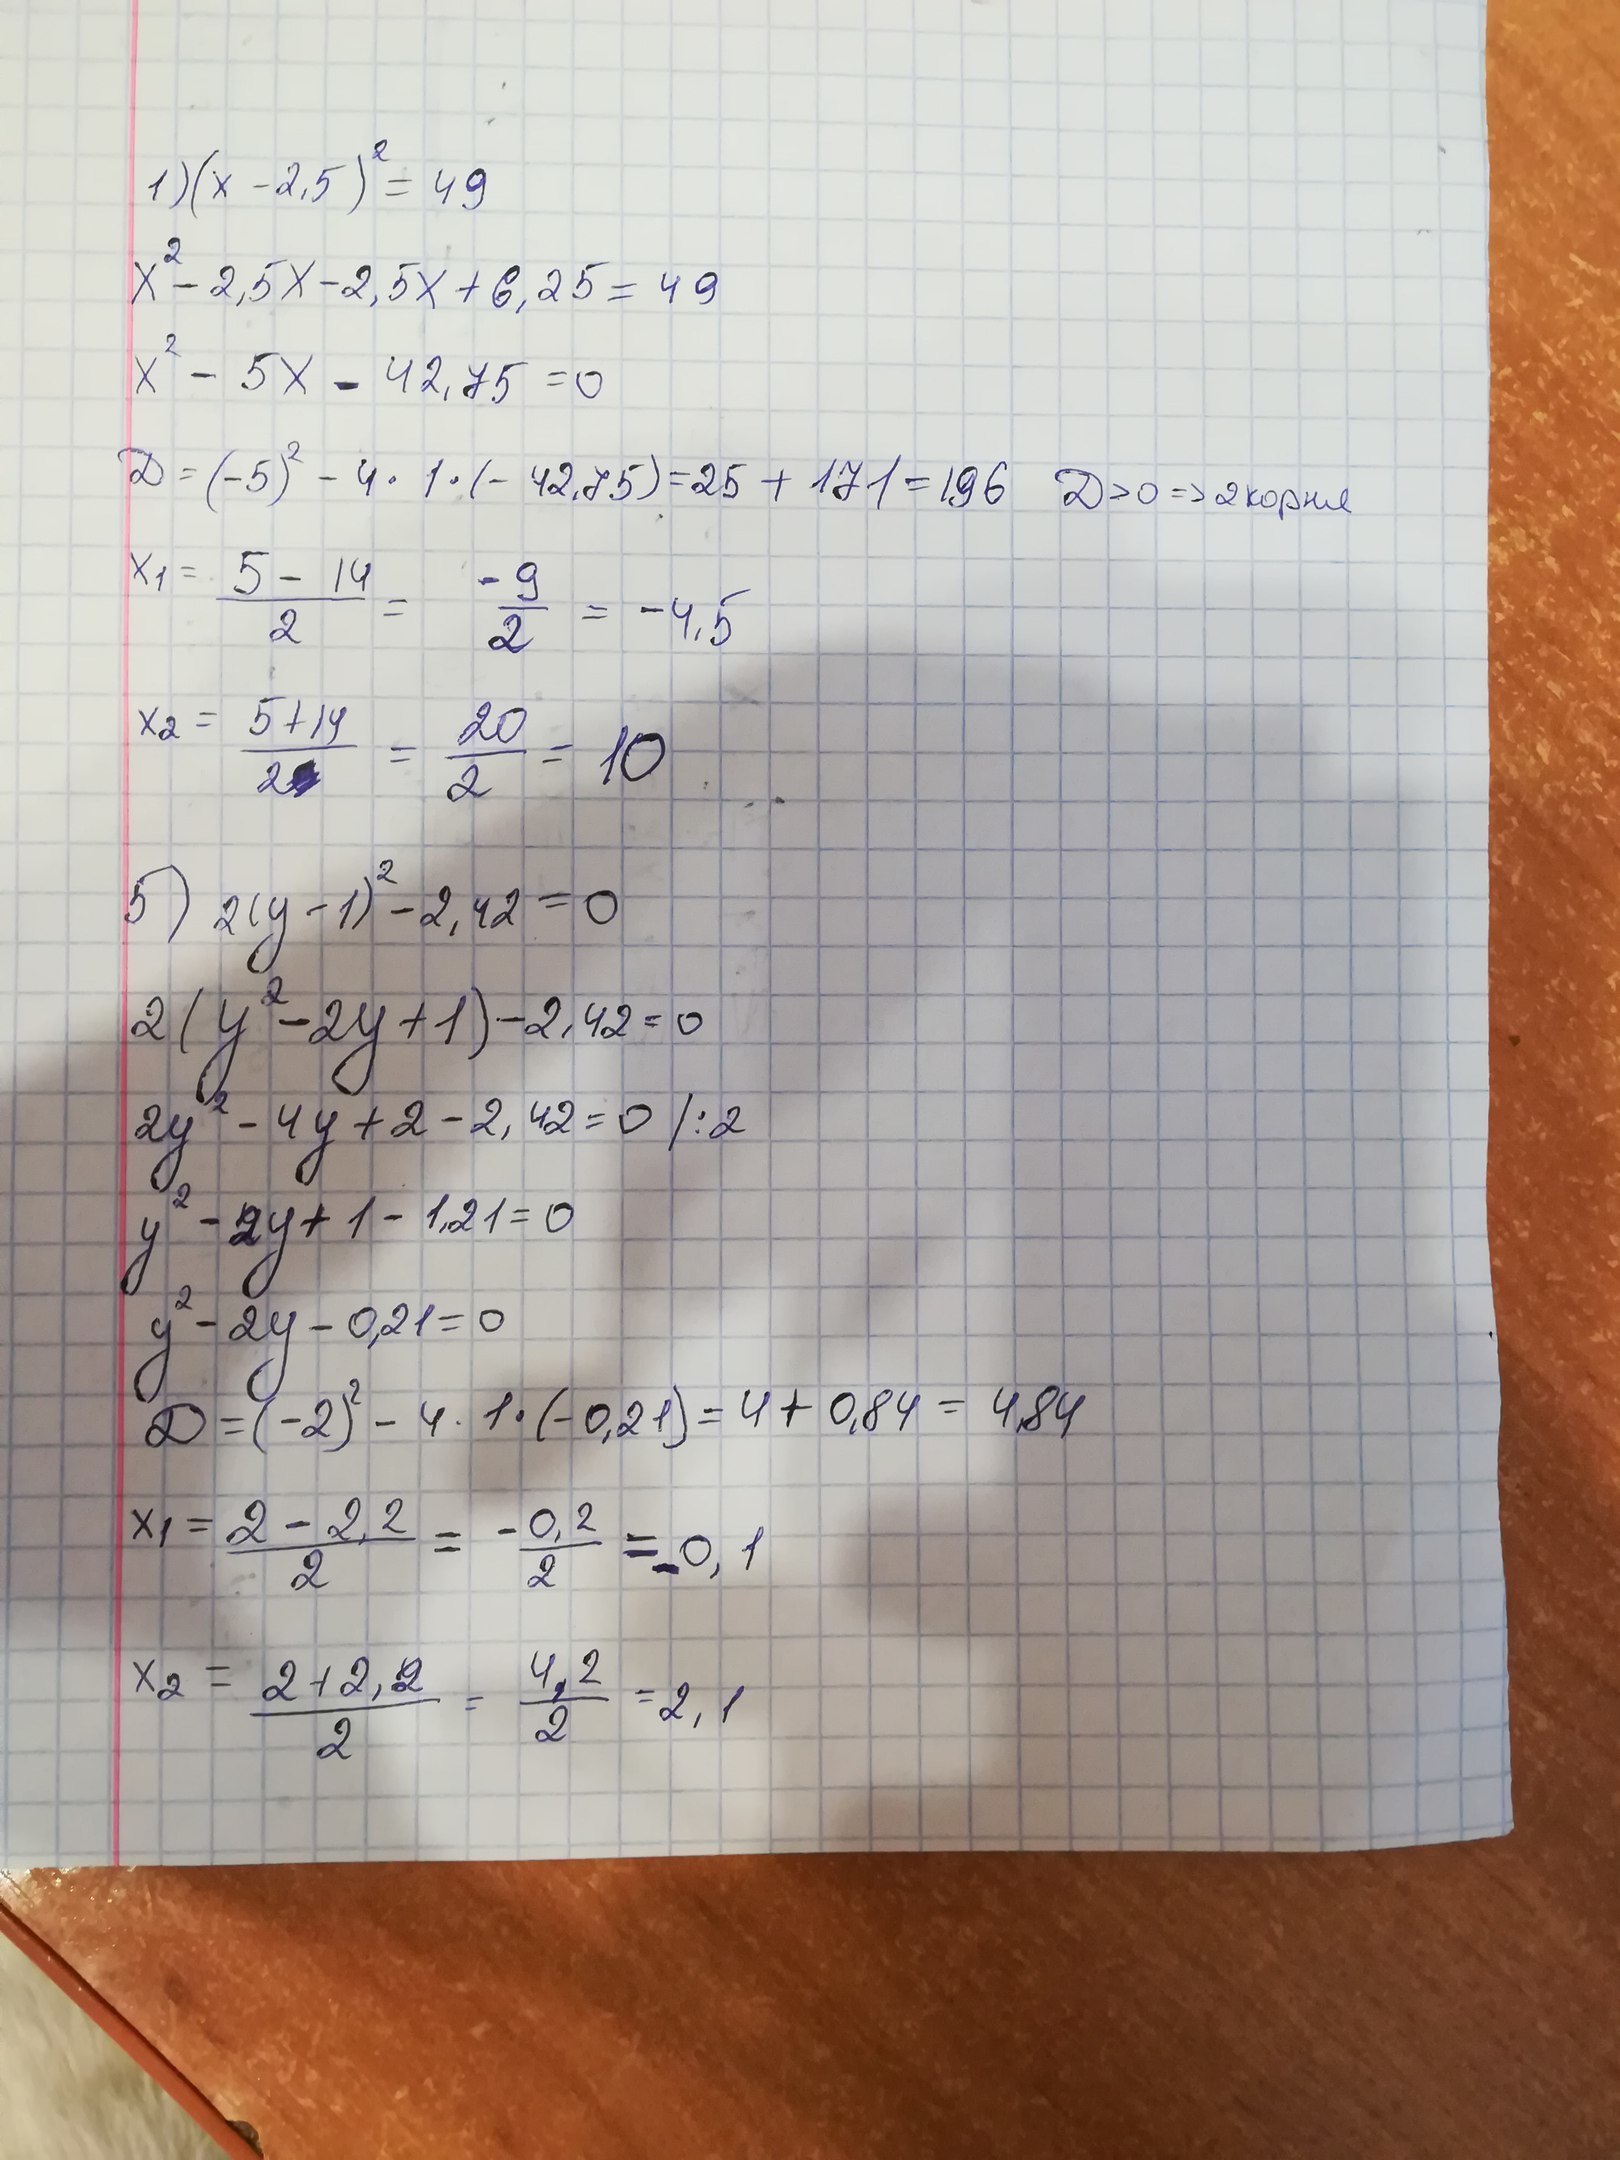 1) (x - 2,5)² = 49
x² - 2,5x - 2,5x + 6,25 = 49
x² - 5x - 42,75 = 0
D = (-5)² - 4 · 1 · (-42,75) = 25 + 171 = 196 D>0 => 2 корня
x₁ = (5 - 14)/2 = -9/2 = -4,5
x₂ = (5+14)/2 = 20/2 = 10
5) 2(y - 1)² - 2,42 = 0
2(y² - 2y + 1) - 2,42 = 0
2y² - 4y + 2 - 2,42 = 0 /:2
y² - 2y + 1 - 1,21 = 0
y² - 2y - 0,21 = 0
D = (-2)² - 4 · 1 · (-0,21) = 4 + 0,84 = 4,84
x₁ = (2 - 2,2)/2 = -0,2/2 = -0,1
x₂ = (2 + 2,2)/2 = 4,2/2 = 2,1